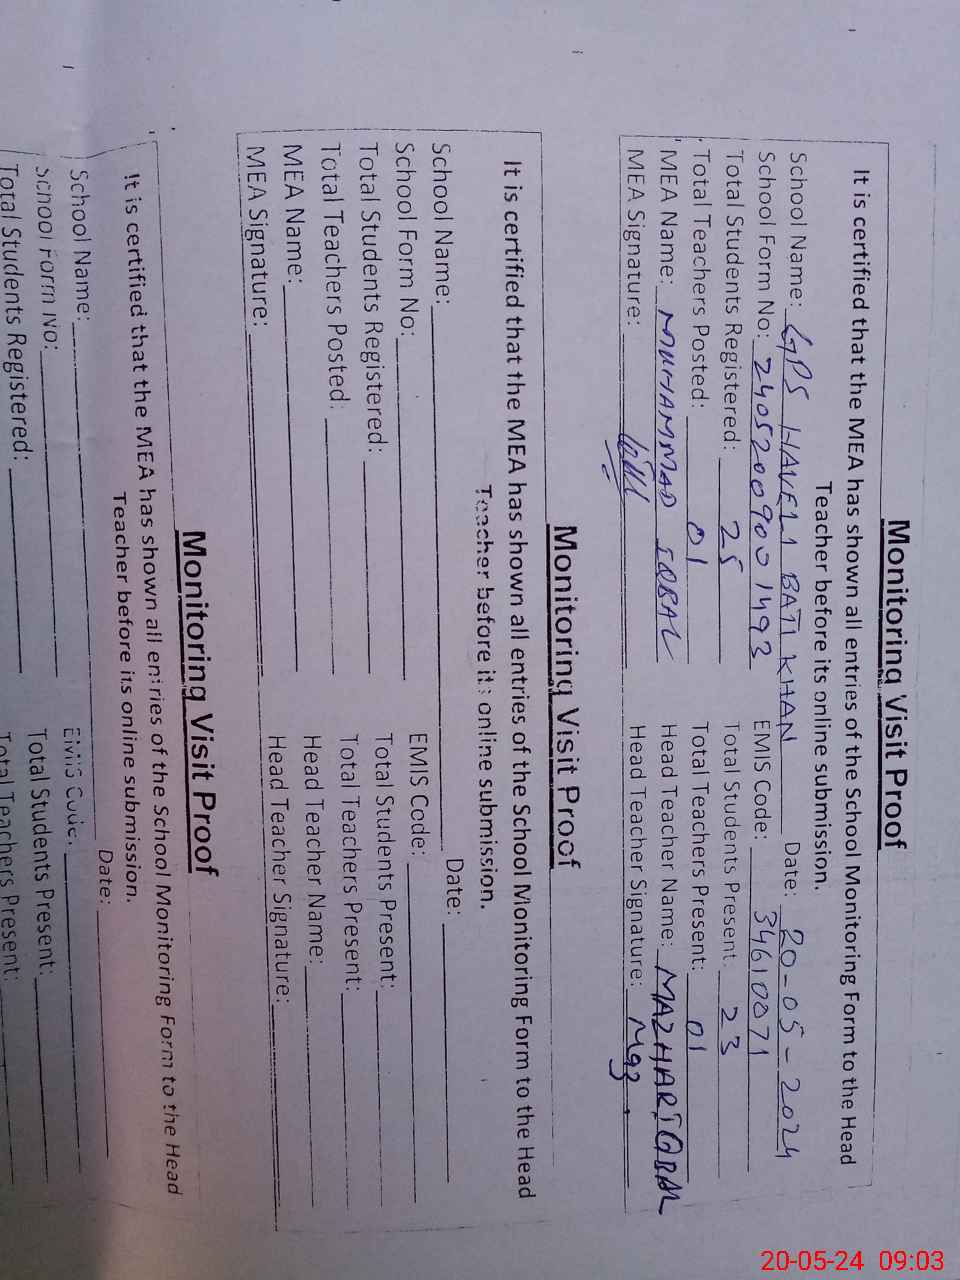 Monitoring Visit Proof
It is certified that the MEA has shown all entries of the School Monitoring Form to the Head
Teacher before its online submission.
School Name: GPS HAVELI BATI KHAN Date: 20-05-2024
School Form No: 24052009001493 EMIS Code: 34610071
Total Students Registered: 25 Total Students Present: 23
Total Teachers Posted: 01 Total Teachers Present: 01
MEA Name: MUHAMMAD IQBAL Head Teacher Name: MAZHAR IQBAL
MEA Signature: Head Teacher Signature:
Monitoring Visit Proof
It is certified that the MEA has shown all entries of the School Monitoring Form to the Head
Teacher before its online submission.
School Name: Date:
School Form No: EMIS Code:
Total Students Registered: Total Students Present:
Total Teachers Posted: Total Teachers Present:
MEA Name: Head Teacher Name:
MEA Signature: Head Teacher Signature:
Monitoring Visit Proof
It is certified that the MEA has shown all entries of the School Monitoring Form to the Head
Teacher before its online submission.
School Name: Date:
School Form No: EMIS Code:
Total Students Registered: Total Students Present:
Total Teachers Present:
20-05-24 09:03